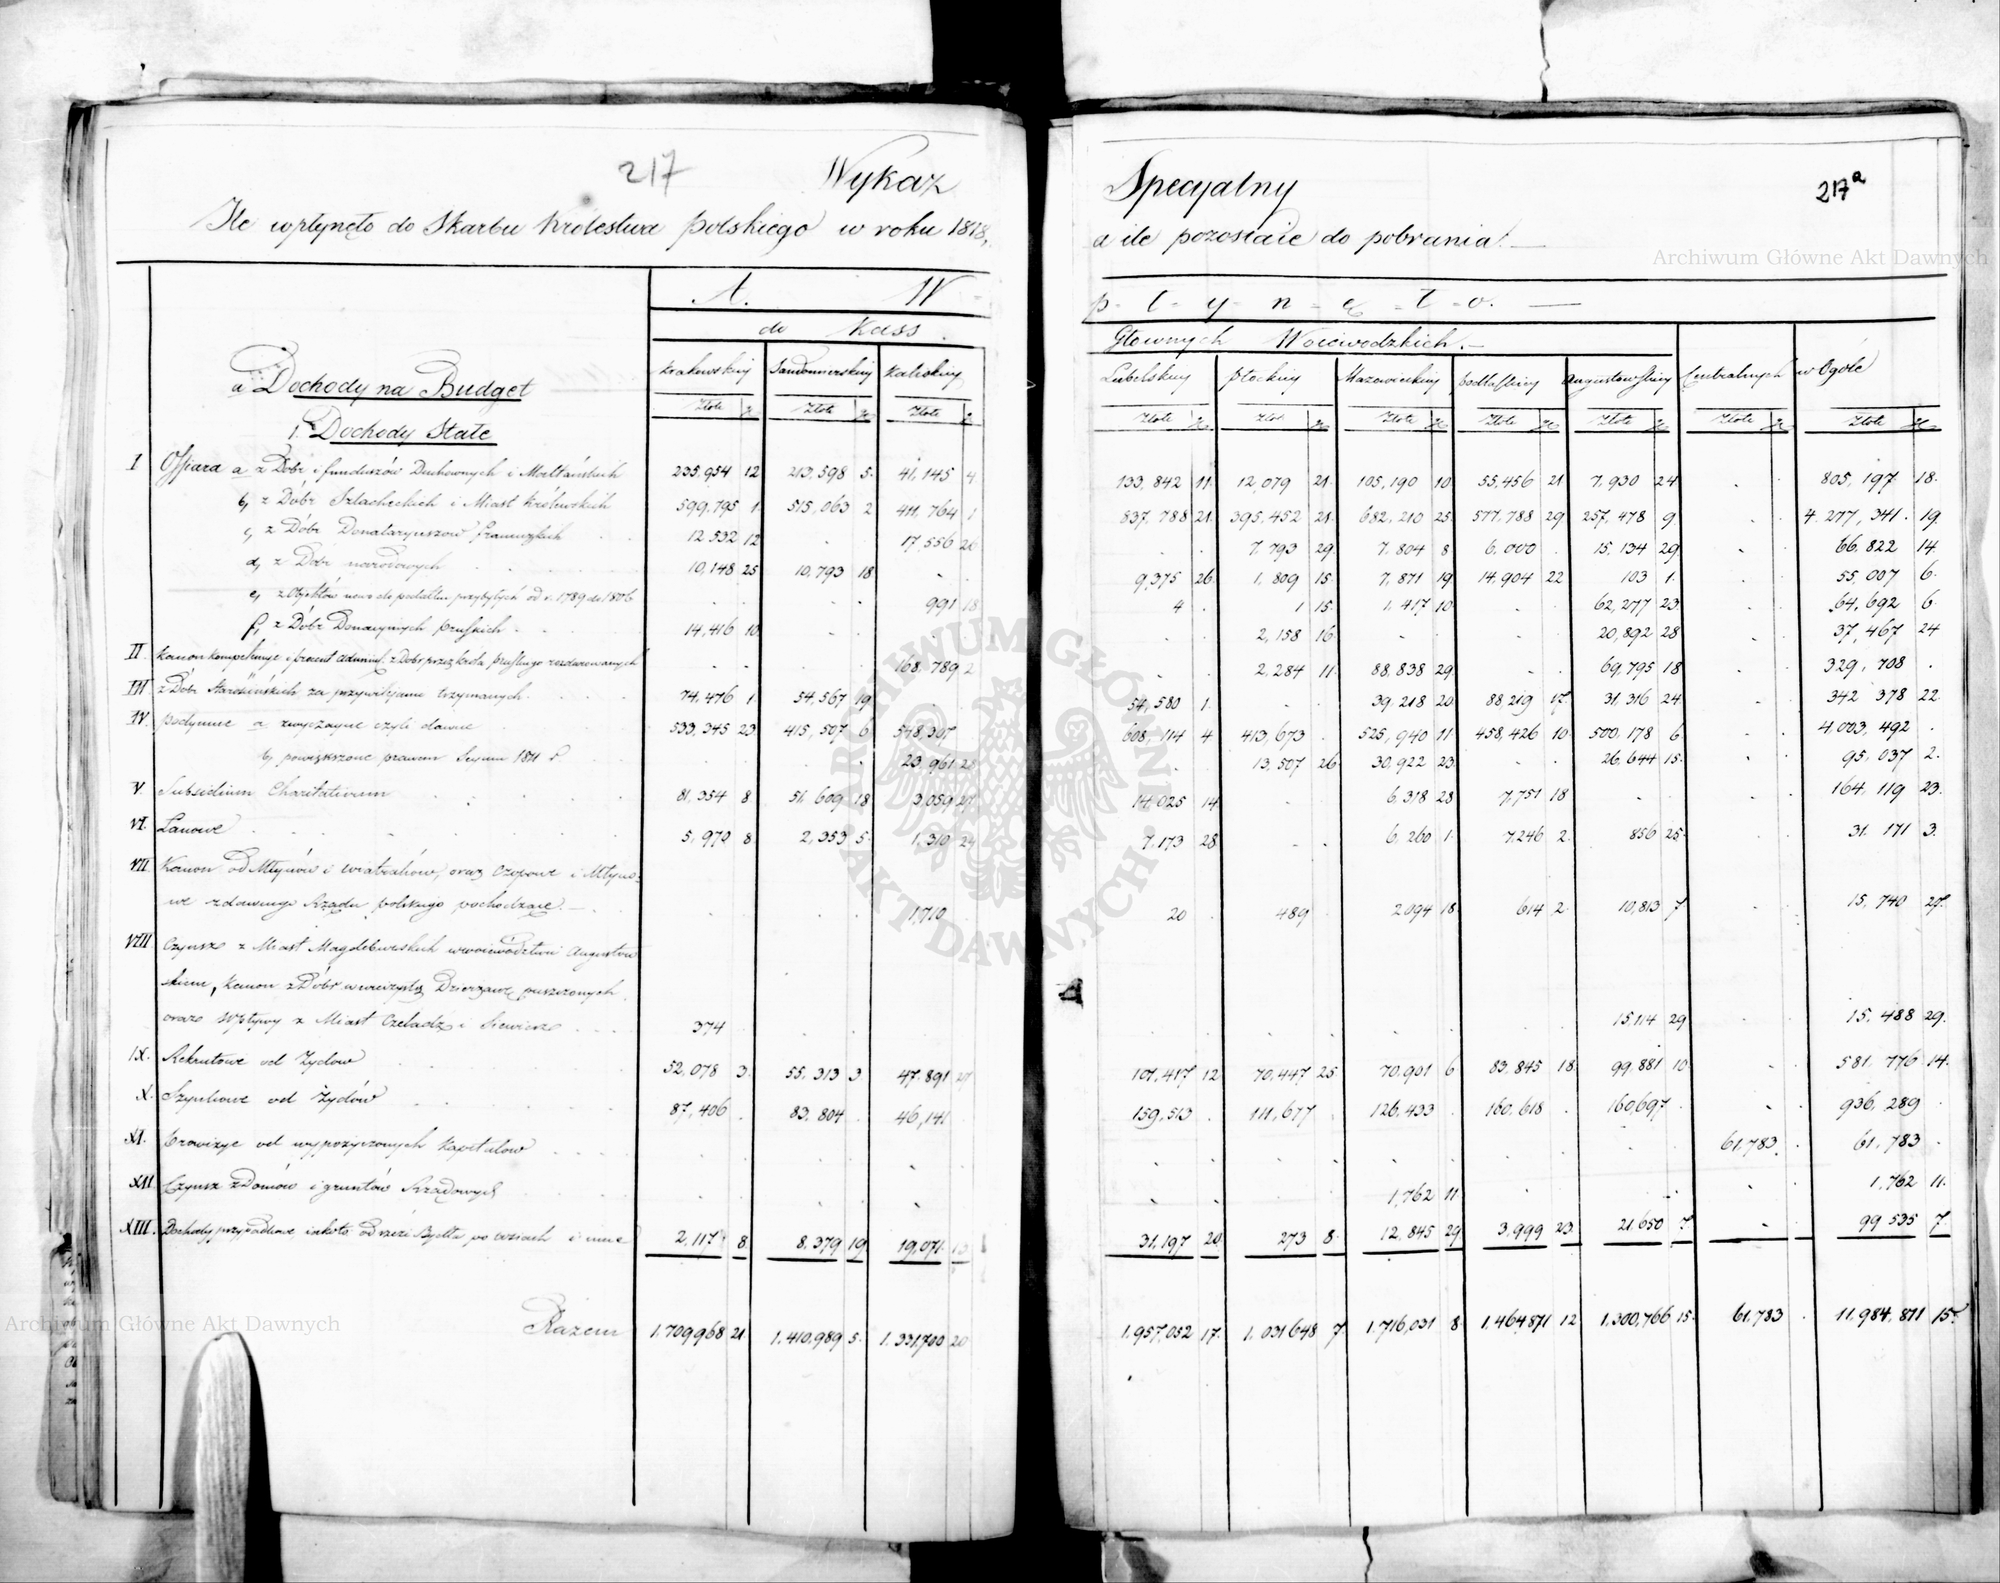 217
Wykaz Specyalny
217a
Ile wpłynęło do Skarbu Królestwa polskiego w roku 1818, a ile pozostaie do pobrania. —
A. W p - ł - y - n - ę - ł - o. —
do Kass Głownych Woiewodzkich. —
Krakowskiey Sandomierskiey Kaliskiey Lubelskiey Płockiey Mazowieckiey podlaskiey Augustowskiey Centralnych w Ogóle
Złote gr Złote gr Złote gr Złote gr Złote gr Złote gr Złote gr Złote gr Złote gr Złote gr
a Dochody na Budget
1. Dochody Stałe
I Offiara a z Dóbr i funduszów Duchownych i Maltańskich 235,954 12 213,598 5. 41,145 4 133,842 11 12,079 21 105,190 10 55,456 21 7,930 24 . . 805,197 18.
b, z Dóbr Szlacheckich i Miast Królewskich 599,795 1 515,063 2 411,764 1 837,788 21. 395,452 21. 682,210 25. 577,788 29 257,478 9 . . 4,277,341. 19.
c, z Dóbr Donataryuszow francuzkich 12,532 12 . . 17,556 26 . . 7,793 29. 7,804 8 6,000 . 15,134 29 . . 66,822 14.
d, z Dóbr narodowych 10,148 25 10,793 18 . . 9,375 26. 1,809 15. 7,871 19 14,904 22 103 1. . . 55,007 6.
e, z Objektów nowo do podatku przybyłych od r. 1789 do 1806 . . . . 991 18 4 . 1 15. 1,417 10 . . 62,277 23. . . 64,692 6.
f, z Dóbr Donacyjnych pruskich . 14,416 10 . . . . . . 2,158 16 . . . . 20,892 28 . . 37,467 24
II Kanon kompetencye i procent z Dóbr przez Króla pruskiego rozdarowanych . . . . 168,789 2 . . 2,284 11. 88,838 29. . . 69,795 18 . . 329,708 .
III z Dóbr Starościńskich za przywilejami trzymanych. 74,476 1 54,567 19 . . 54,580 1. . . 39,218 20. 88,219 17. 31,316 24. . . 342,378 22.
IV podymne a zwyczayne czyli dawne 533,345 23 415,507 6 548,307 608,114 4 413,673 . 525,940 11 458,426 10. 500,178 6. . . 4,003,492 .
b, powiększone prawem Seymu 1811 r . . . . 23,961 28 . . 13,507 26. 30,922 23. . . 26,644 15. . . 95,037 2.
V. Subsidium Charitativum 81,354 8 51,609 18 3,059 27 14,025 14 . . 6,318 28 7,751 18 . . . . 164,119 23.
VI. Łanowe 5,970 8 2,353 5. 1,310 24 7,173 28. . . 6,260 1. 7,246 2. 856 25. . . 31,171 3.
VII. Kanon od Młynów i wiatraków, oraz Czopowe i Młyno-
we z dawnego Rządu polskiego pochodzące. — . . . . 1,710 . 20 . 489 . 2094 18. 614 2 10,813 7 . . 15,740 27.
VIII Czynsze z Miast Magdeburskich w woiewództwie Augustow
skiem, Kanon z Dóbr w wieczystą Dzierżawę puszczonych
oraz Wpływy z Miast Czeladź i Siewierz 374 . . . . . . . . . . . . . 15,114 29 . . 15,488 29.
IX. Rekrutowe od Żydow 52,078 3. 55,313 3 47,891 27 101,417 12 70,447 25 70,901 6 83,845 18. 99,881 10. . . 581,776 14.
X. Szynkowe od Żydów 87,406 . 83,804 . 46,141 . 159,513 . 111,677 . 126,433 . 160,618 . 160,697 . . . 936,289 .
XI. Prowizye od wypożyczonych Kapitałow . . . . . . . . . . . . . . . . 61,783. . 61,783 .
XII Czynsz z Domów i gruntów Rządowych . . . . . . . . . . 1,762 11. . . . . . . 1,762 11.
XIII. Dochody przypadkowe iakoto od rzezi Bydła po wsiach i inne 2,117 8. 8,379 19 19,071. 13 31,197 20. 273 8. 12,845 29. 3,999 23. 21,650 7 . . 99,535 7.
Razem 1,709,968 21. 1,410,989 5. 1,331,700 20 1,957,052 17. 1,031,648 7. 1,716,031 8. 1,464,871 12 1,300,766 15. 61,783 . 11,984,811 15.
Archiwum Główne Akt Dawnych
ARCHIWUM GŁÓWNE AKT DAWNYCH
Archiwum Główne Akt Dawnych